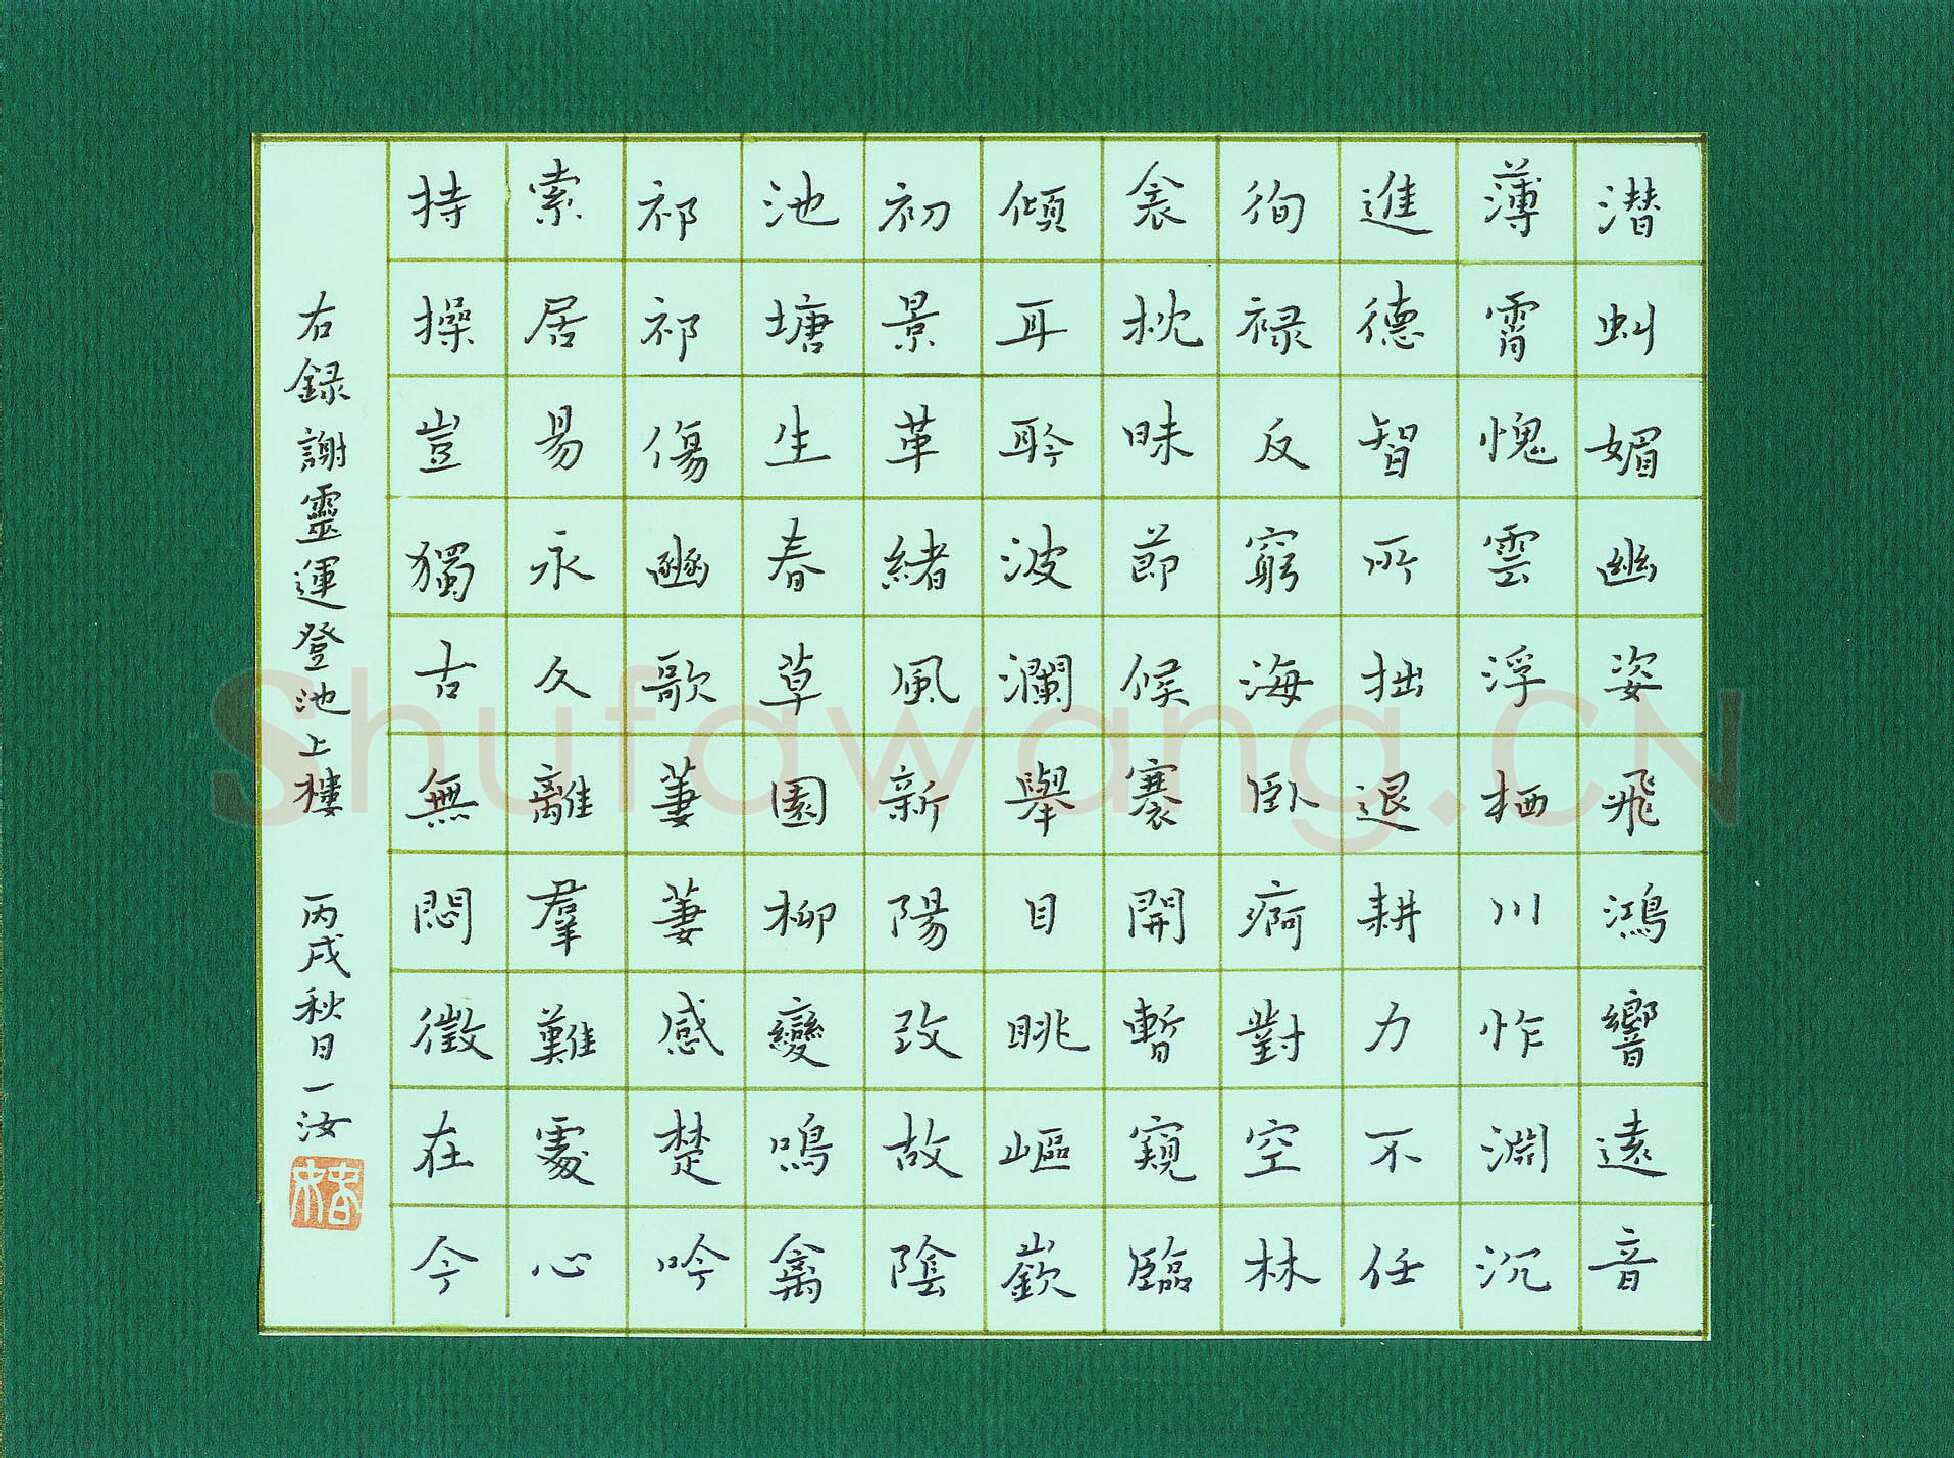 潜虬媚幽姿飛鴻響遠音
薄霄愧雲浮栖川怍淵沉
進德智所拙退耕力不任
徇禄反窮海卧痾對空林
衾枕昧節候褰開暫窺臨
傾耳聆波瀾舉目眺嶇嶔
初景革緒風新陽改故陰
池塘生春草園柳變鳴禽
祁祁傷豳歌萋萋感楚吟
索居易永久離羣難處心
持操豈獨古無悶徵在今
右録謝靈運登池上樓 丙戌秋日一汝
Shufawang.CN